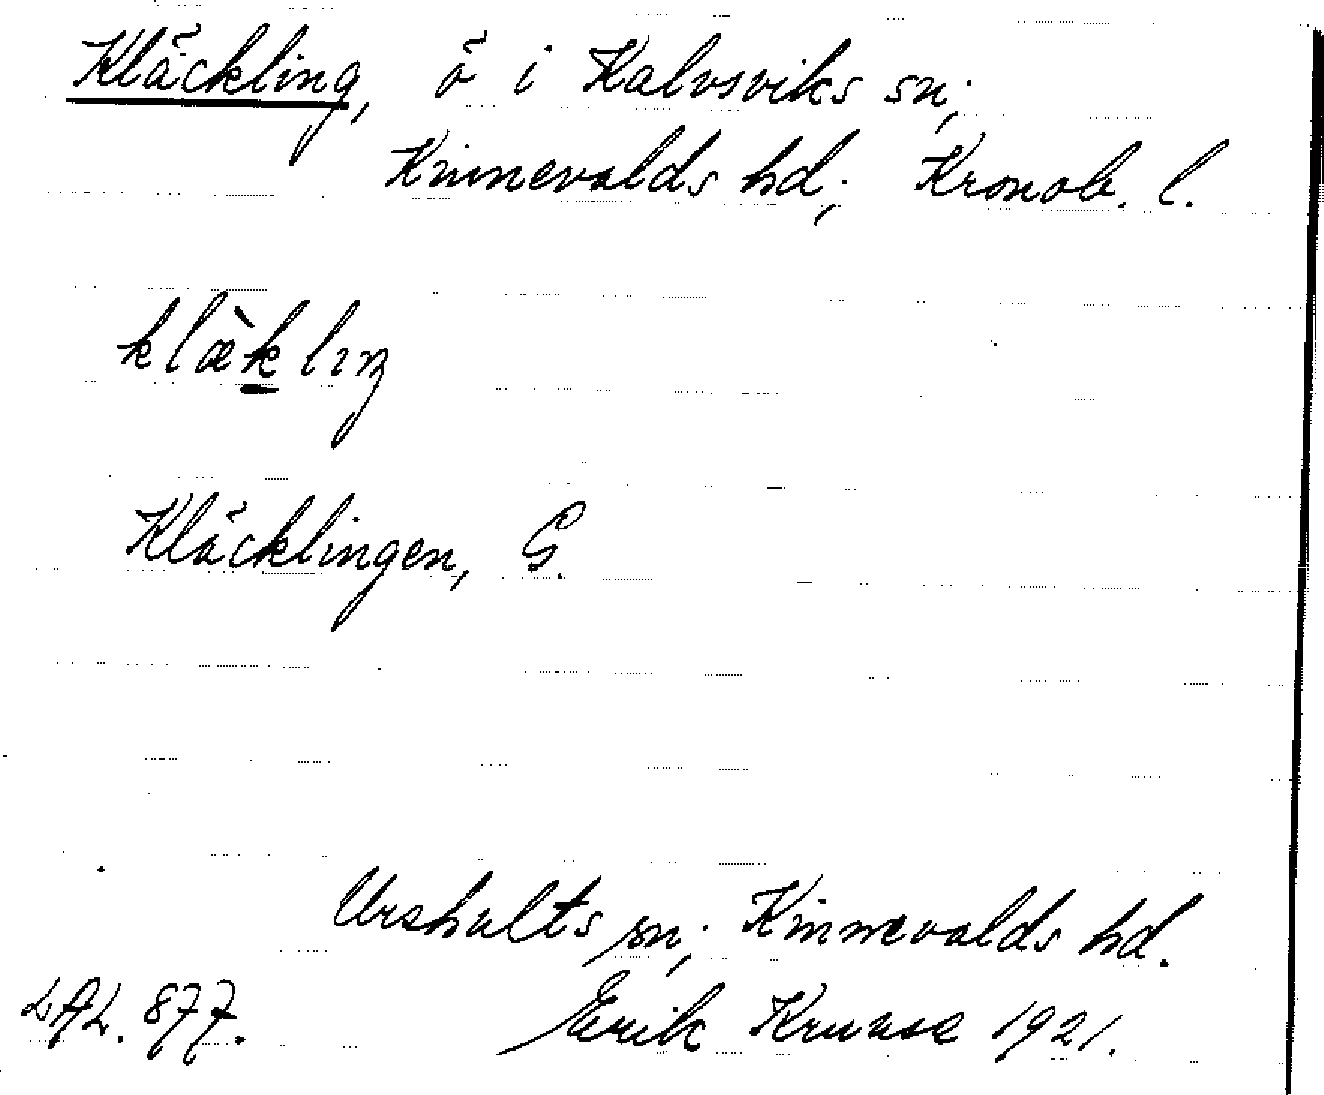 Kläckling, ö i Kalvsviks sn;
Kinnevalds hd; Kronob. l.
klæ̀kliŋ
Kläcklingen, G.
Urshults sn; Kinnevalds hd.
LAL. 877. Erik Kruuse 1921.